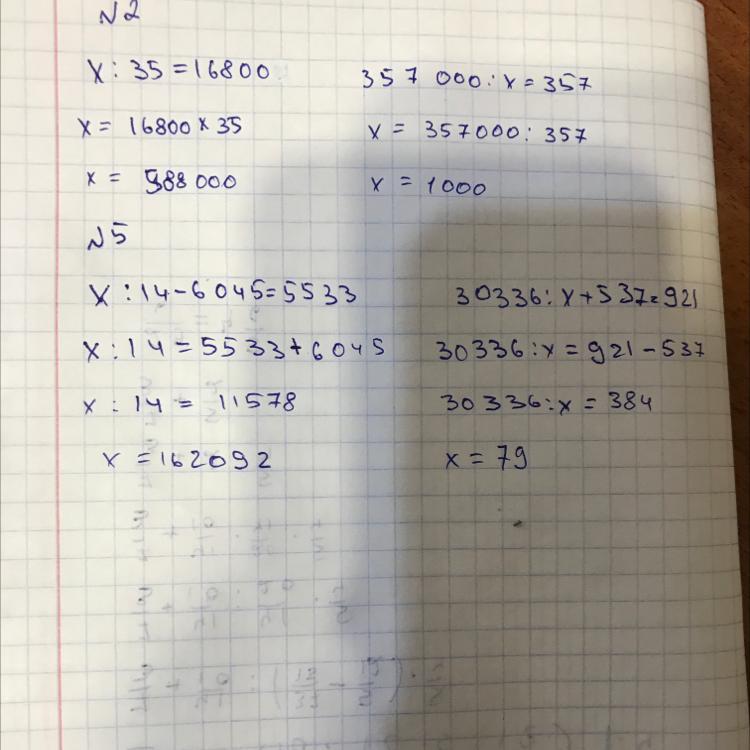 N2
x : 35 = 16800
x = 16800 × 35
x = 588 000
357 000 : x = 357
x = 357000 : 357
x = 1000
N5
x : 14 - 6045 = 5533
x : 14 = 5533 + 6045
x : 14 = 11578
x = 162092
30336 : x + 537 = 921
30336 : x = 921 - 537
30336 : x = 384
x = 79